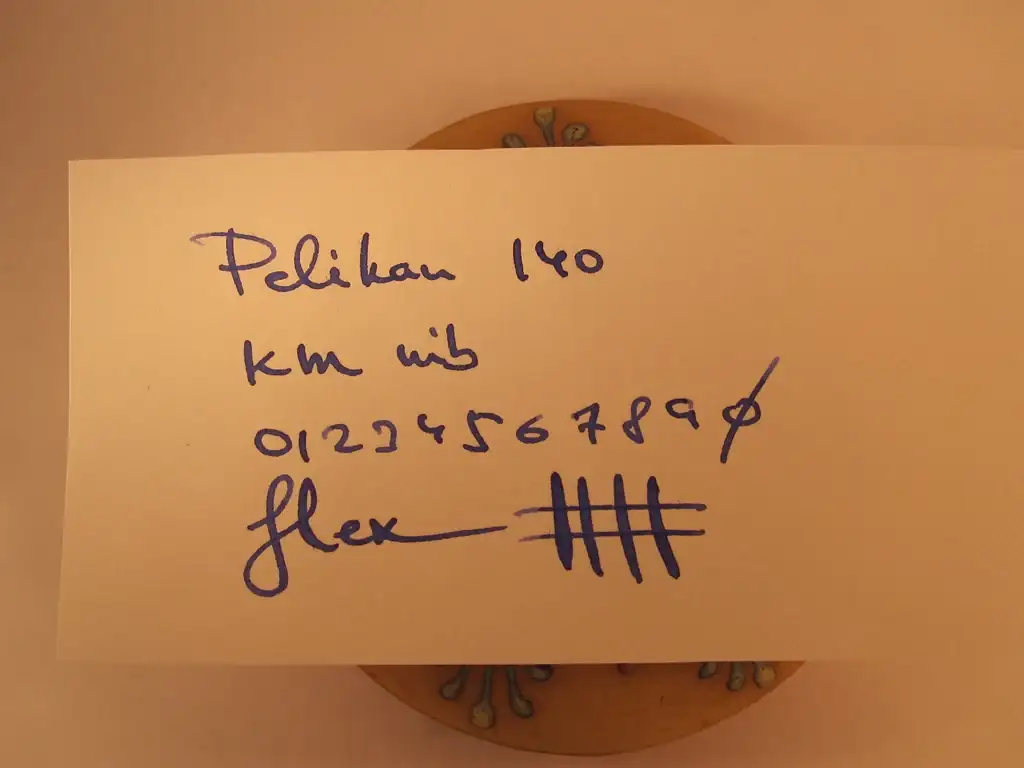 Pelikan 140
KM nib
0123456789ø
flex